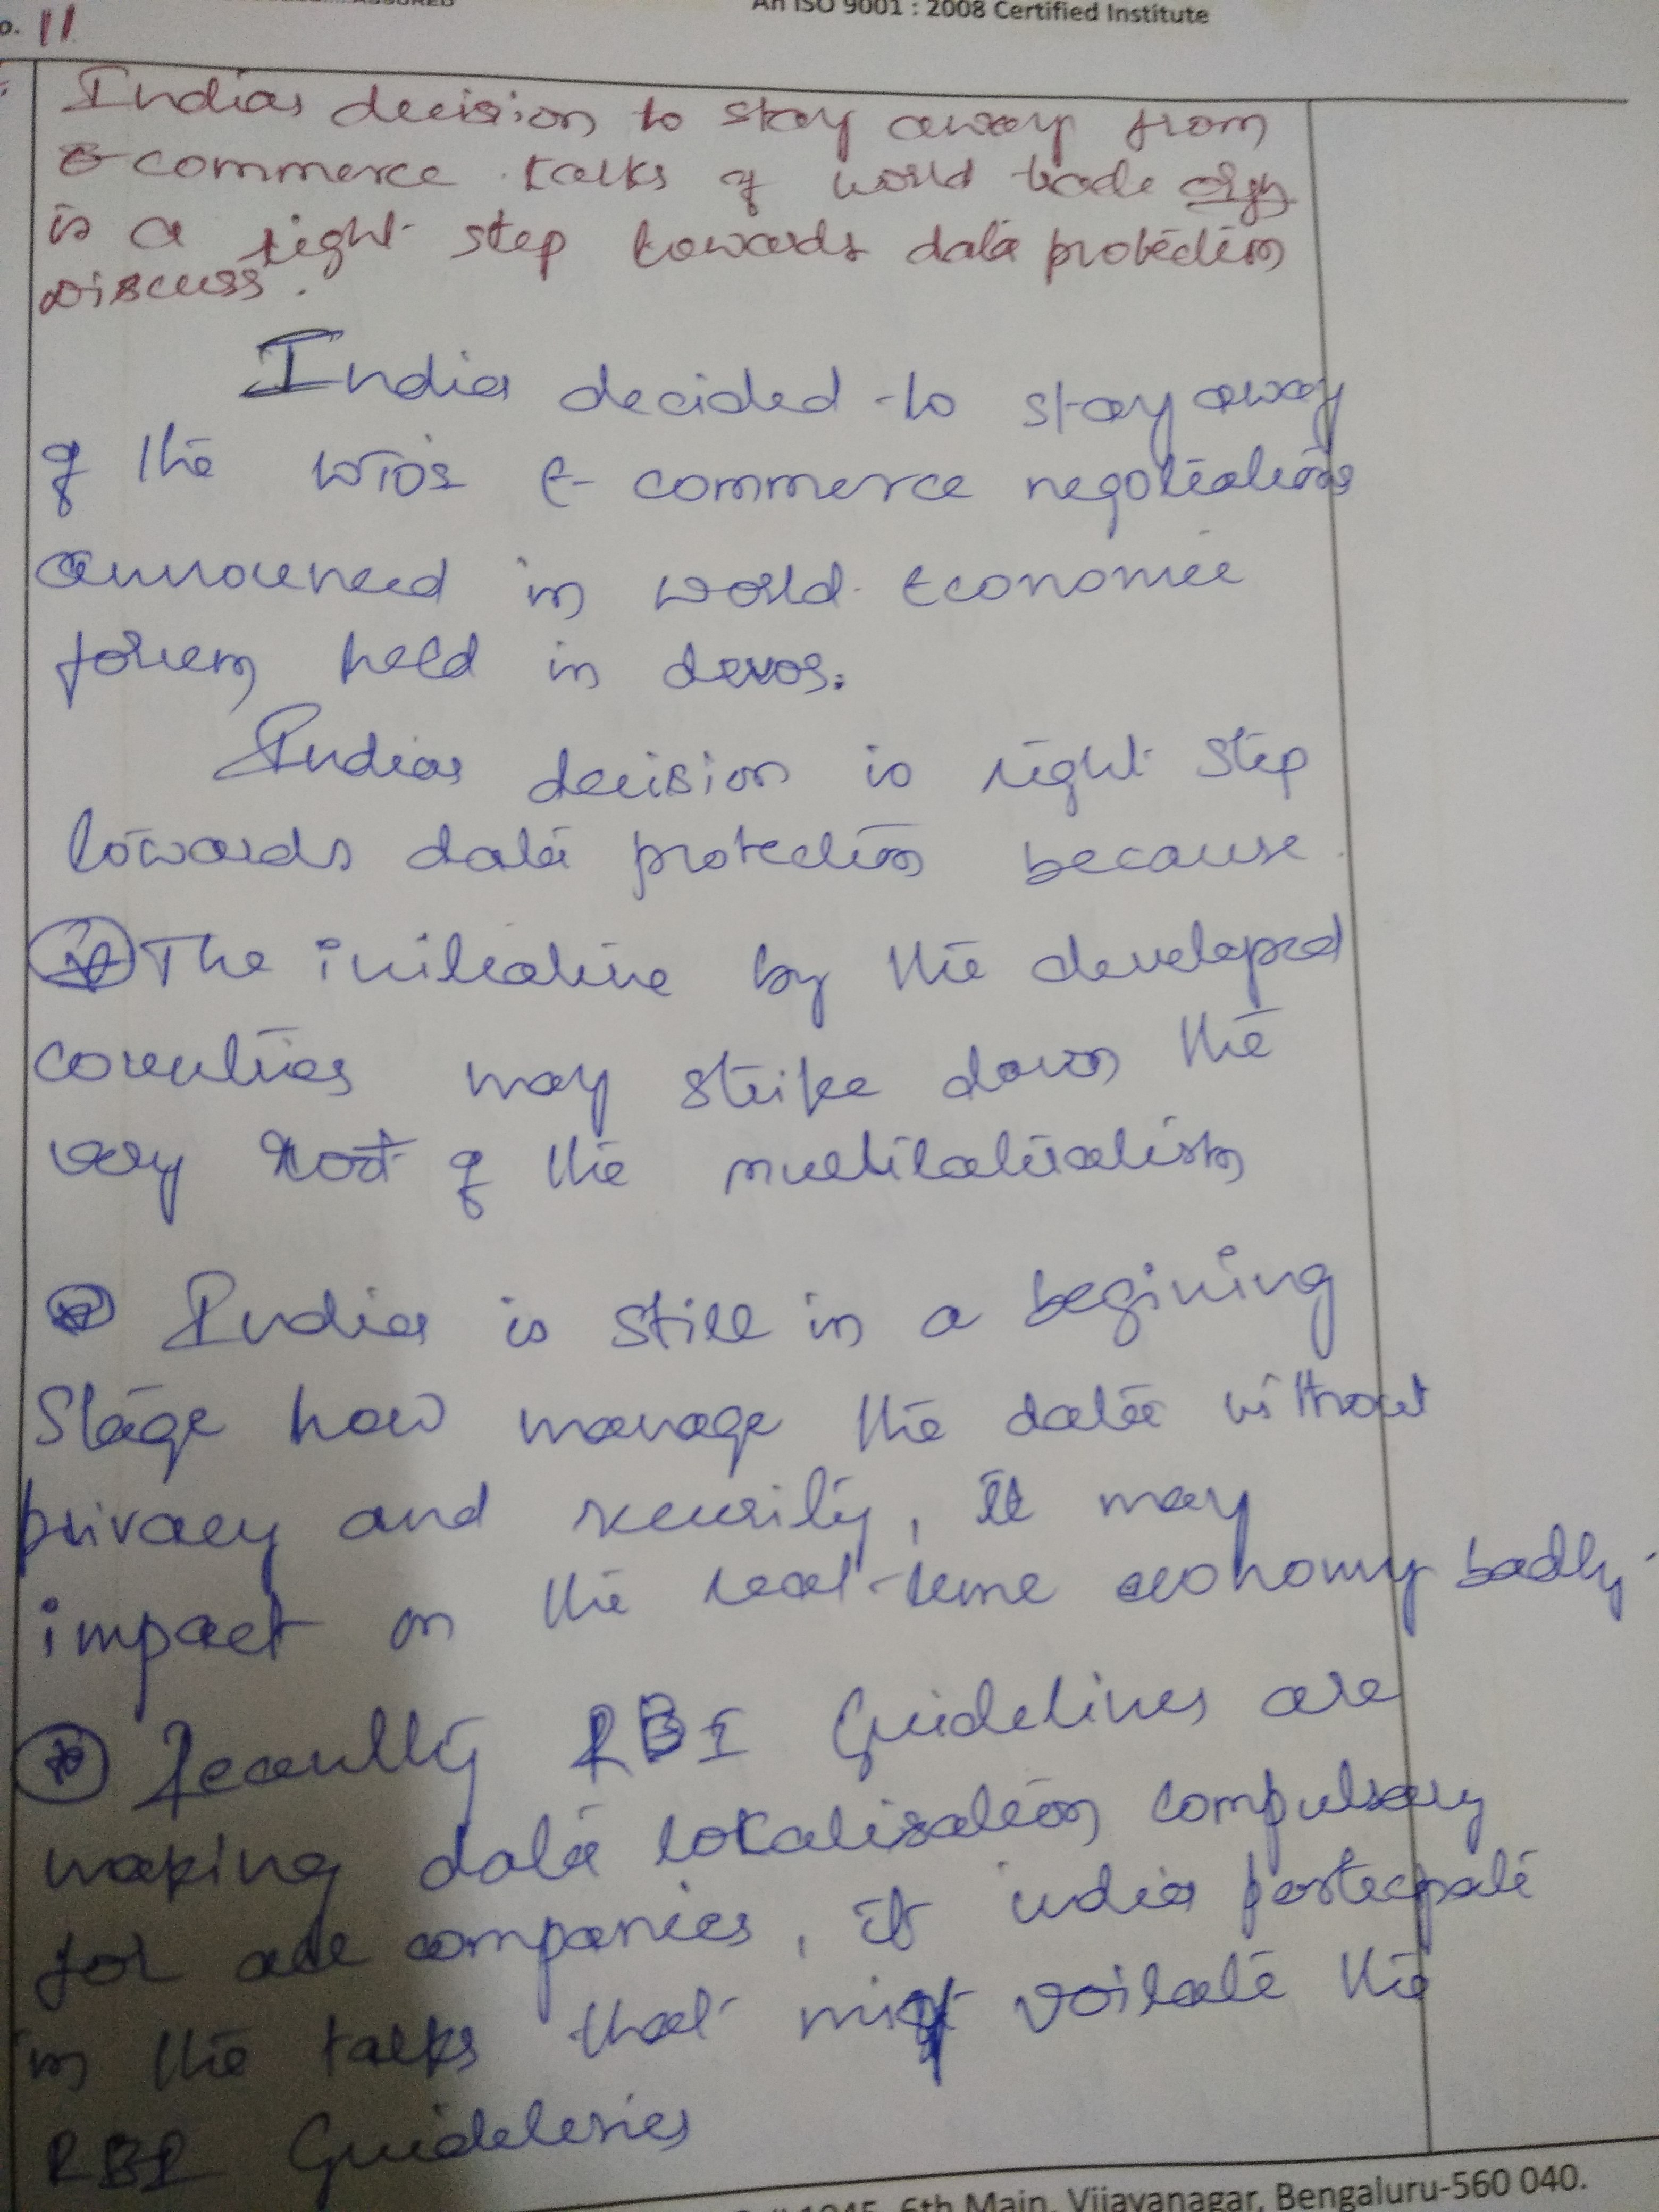 An ISO 9001 : 2008 Certified Institute
o. 11
Indias decision to stay away from
E-commerce talks of world trade orgn
is a right step towards data protection
Discuss.
India decided to stay away
of the WTO's E-commerce negotiations
announced in world Economic
forum held in devos.
Indias decision is right step
towards data protection because
The initiative by the developed
countries may strike down the
very root of the multilateralism
India is still in a begining
Stage how manage the data without
privacy and security, it may
impact on the real-time economy badly.
Recently RBI Guidelines are
making data localisation compulsary
for all companies, if india partecipate
in the talks that might voilate the
RBI Guidelenies
6th Main, Vijayanagar, Bengaluru-560 040.